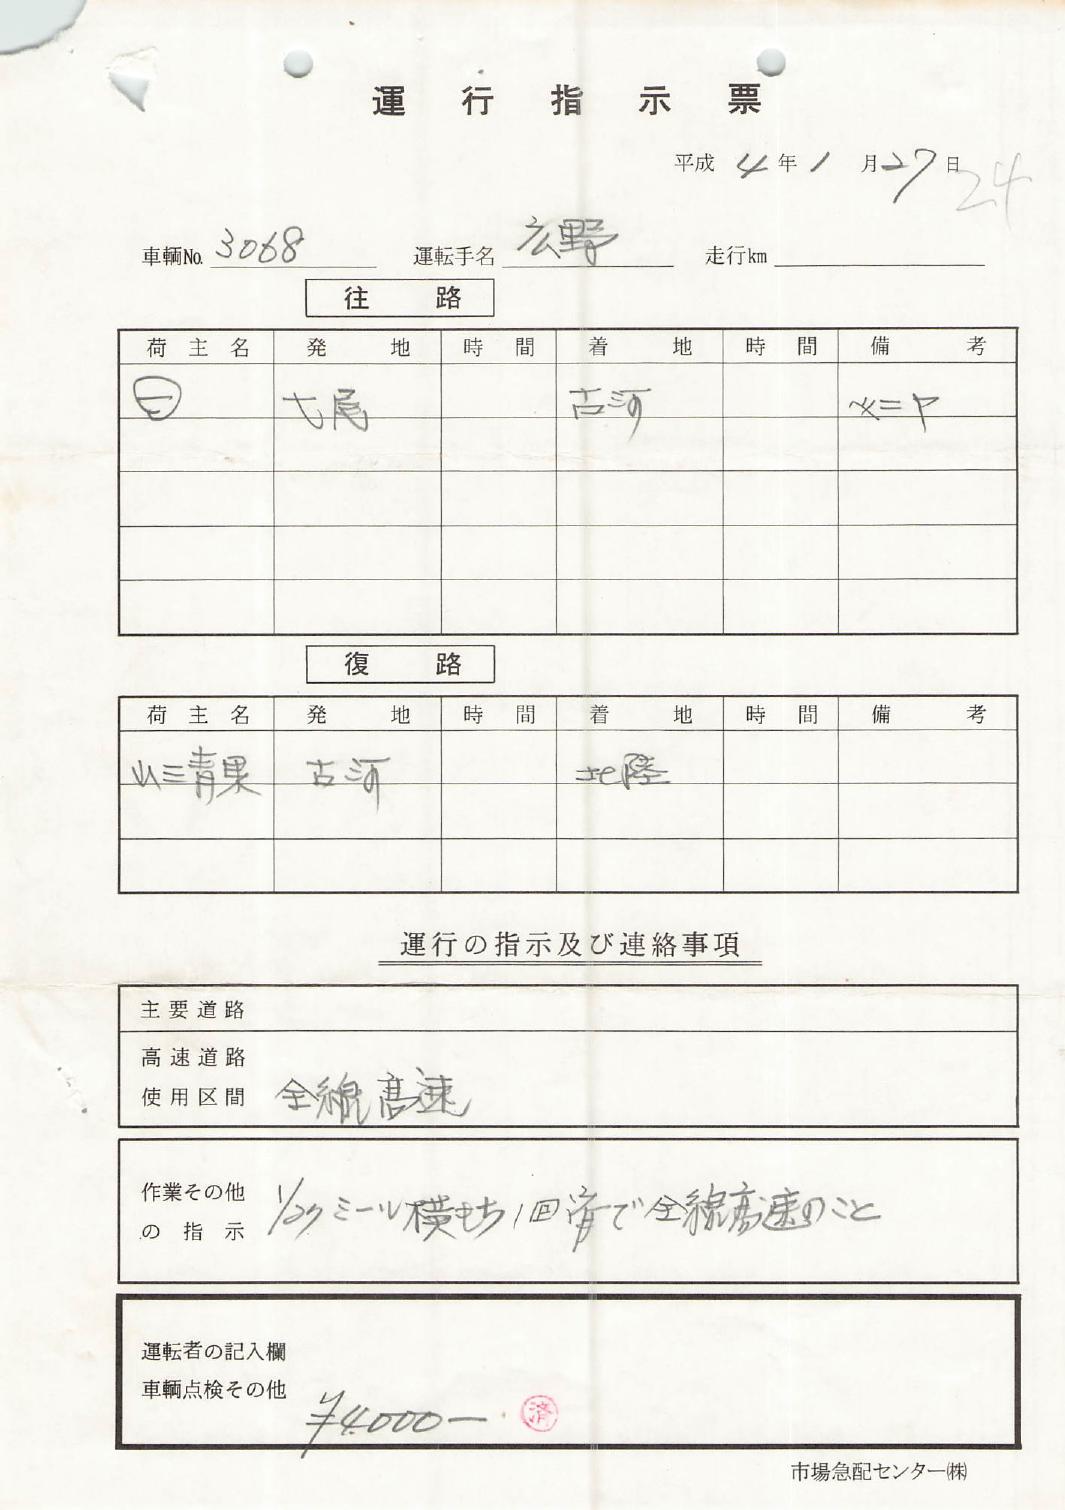 運行指示票
平成 4年 1月 27日 24
車輌No. 3068 運転手名 広野 走行km
往路
荷主名 発地 時間 着地 時間 備考
七尾 古河 ベニヤ
復路
荷主名 発地 時間 着地 時間 備考
山三青果 古河 北陸
運行の指示及び連絡事項
主要道路
高速道路
使用区間 全線高速
作業その他
の指示 1/27 ミール横もち1回済で全線高速のこと
運転者の記入欄
車輌点検その他
¥4000ー 済
市場急配センター㈱